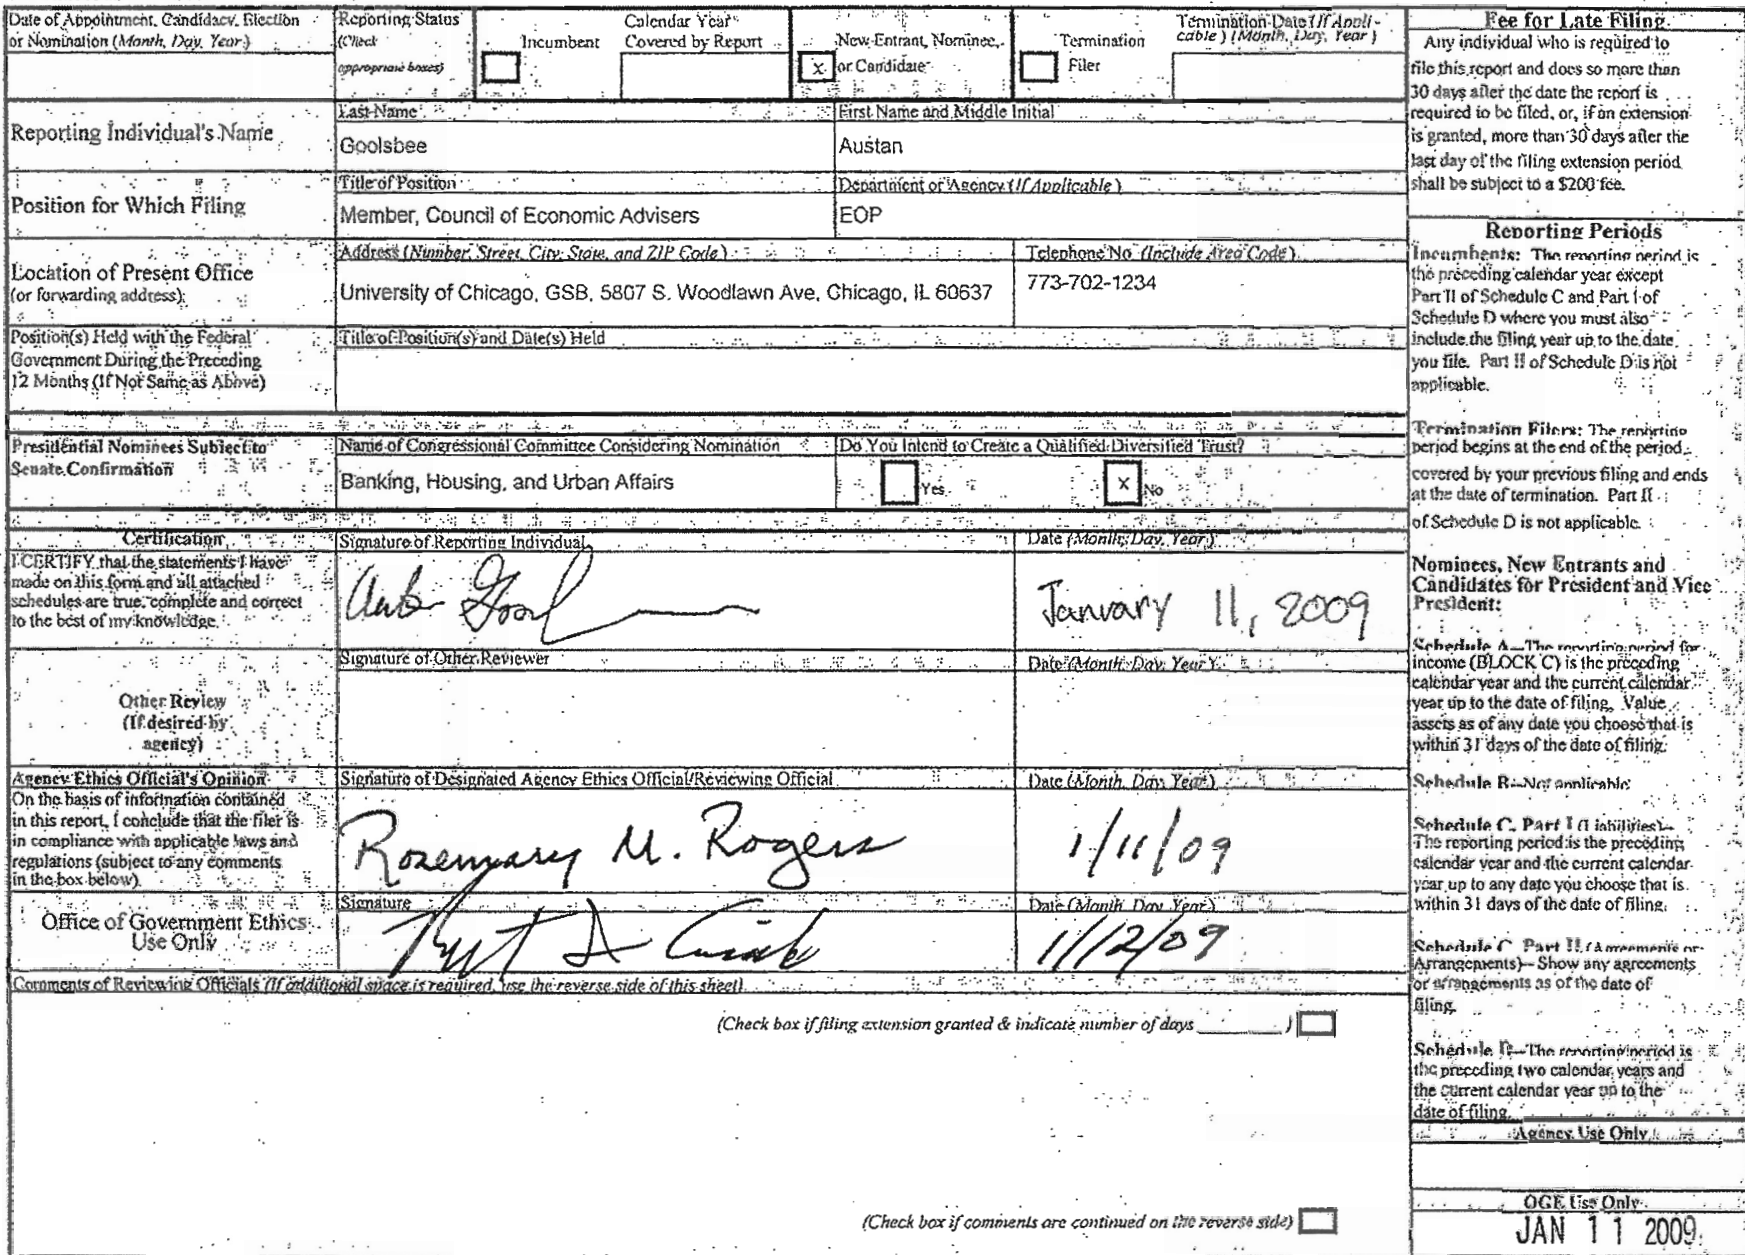 Date of Appointment, Candidacy, Election
or Nomination (Month, Day, Year)
Reporting Status
(Check
appropriate boxes)
Incumbent
Calendar Year
Covered by Report
x
New Entrant, Nominee,
or Candidate
Termination
Filer
Termination Date (If Appli-
cable) (Month, Day, Year)
Reporting Individual's Name
Last Name
Goolsbee
First Name and Middle Initial
Austan
Position for Which Filing
Title of Position
Member, Council of Economic Advisers
Department or Agency (If Applicable)
EOP
Location of Present Office
(or forwarding address)
Address (Number, Street, City, State, and ZIP Code)
University of Chicago, GSB, 5807 S. Woodlawn Ave, Chicago, IL 60637
Telephone No. (Include Area Code)
773-702-1234
Position(s) Held with the Federal
Government During the Preceding
12 Months (If Not Same as Above)
Title of Position(s) and Date(s) Held
Presidential Nominees Subject to
Senate Confirmation
Name of Congressional Committee Considering Nomination
Banking, Housing, and Urban Affairs
Do You Intend to Create a Qualified Diversified Trust?
Yes
x No
Certification
I CERTIFY that the statements I have
made on this form and all attached
schedules are true, complete and correct
to the best of my knowledge.
Signature of Reporting Individual
Date (Month, Day, Year)
January 11, 2009
Other Review
(If desired by
agency)
Signature of Other Reviewer
Date (Month, Day, Year)
Agency Ethics Official's Opinion
On the basis of information contained
in this report, I conclude that the filer is
in compliance with applicable laws and
regulations (subject to any comments
in the box below)
Signature of Designated Agency Ethics Official/Reviewing Official
Rosemary M. Rogers
Date (Month, Day, Year)
1/11/09
Office of Government Ethics
Use Only
Signature
Date (Month, Day, Year)
1/12/09
Comments of Reviewing Officials (If additional space is required, use the reverse side of this sheet)
(Check box if filing extension granted & indicate number of days ______)
(Check box if comments are continued on the reverse side)
Fee for Late Filing
Any individual who is required to
file this report and does so more than
30 days after the date the report is
required to be filed, or, if an extension
is granted, more than 30 days after the
last day of the filing extension period
shall be subject to a $200 fee.
Reporting Periods
Incumbents: The reporting period is
the preceding calendar year except
Part II of Schedule C and Part I of
Schedule D where you must also
include the filing year up to the date
you file. Part II of Schedule D is not
applicable.
Termination Filers: The reporting
period begins at the end of the period
covered by your previous filing and ends
at the date of termination. Part II
of Schedule D is not applicable.
Nominees, New Entrants and
Candidates for President and Vice
President:
Schedule A—The reporting period for
income (BLOCK C) is the preceding
calendar year and the current calendar
year up to the date of filing. Value
assets as of any date you choose that is
within 31 days of the date of filing.
Schedule B—Not applicable
Schedule C, Part I (Liabilities)—
The reporting period is the preceding
calendar year and the current calendar
year up to any date you choose that is
within 31 days of the date of filing.
Schedule C, Part II (Agreements or
Arrangements)—Show any agreements
or arrangements as of the date of
filing.
Schedule D—The reporting period is
the preceding two calendar years and
the current calendar year up to the
date of filing.
Agency Use Only
OGE Use Only
JAN 11 2009